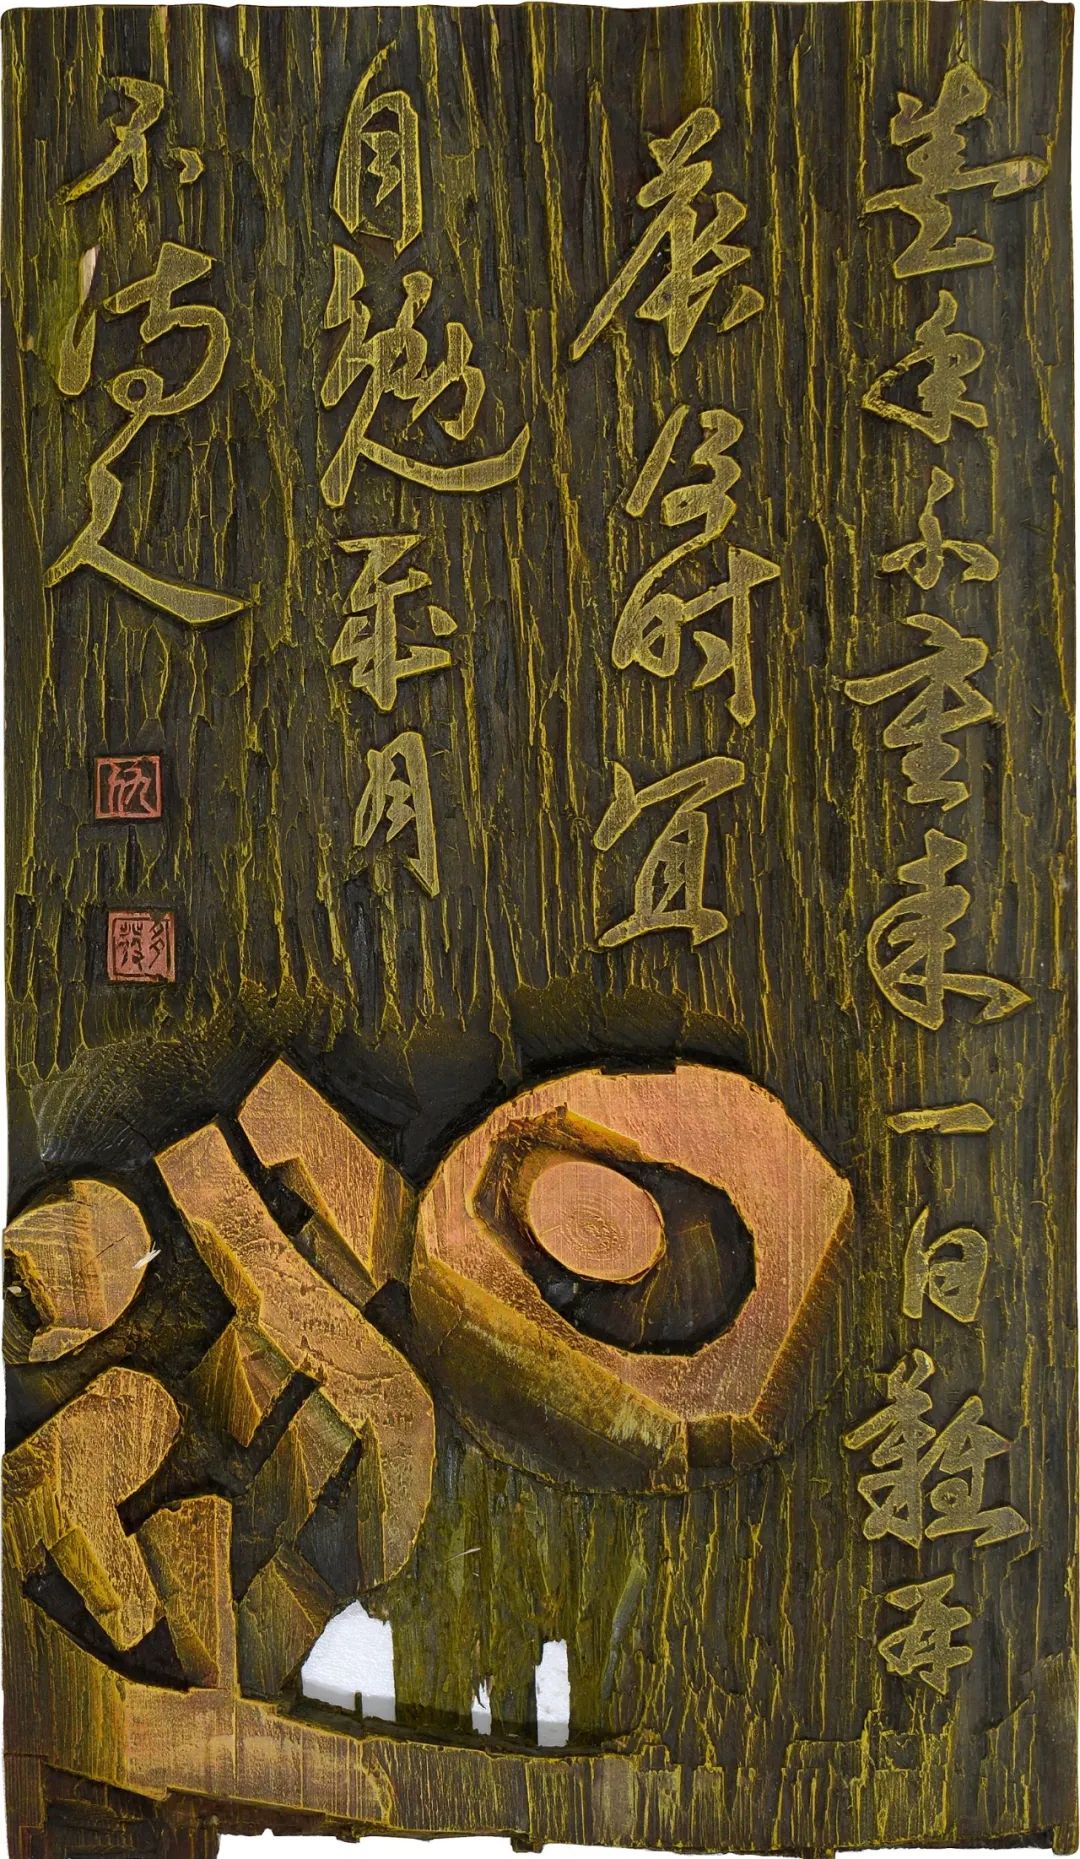 盛年不重来一日難再
晨及时宜
自勉歲月
不待人